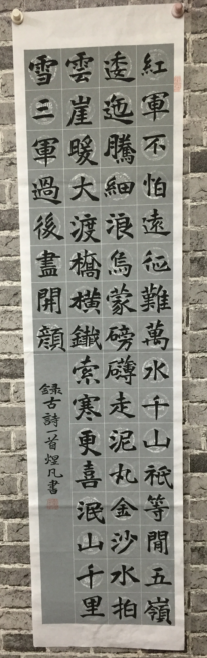 紅軍不怕遠征難萬水千山祇等閒五嶺
逶迤騰細浪烏蒙磅礴走泥丸金沙水拍
雲崖暖大渡橋橫鐵索寒更喜泯山千里
雪三軍過後盡開顏
錄古詩一首煜凡書